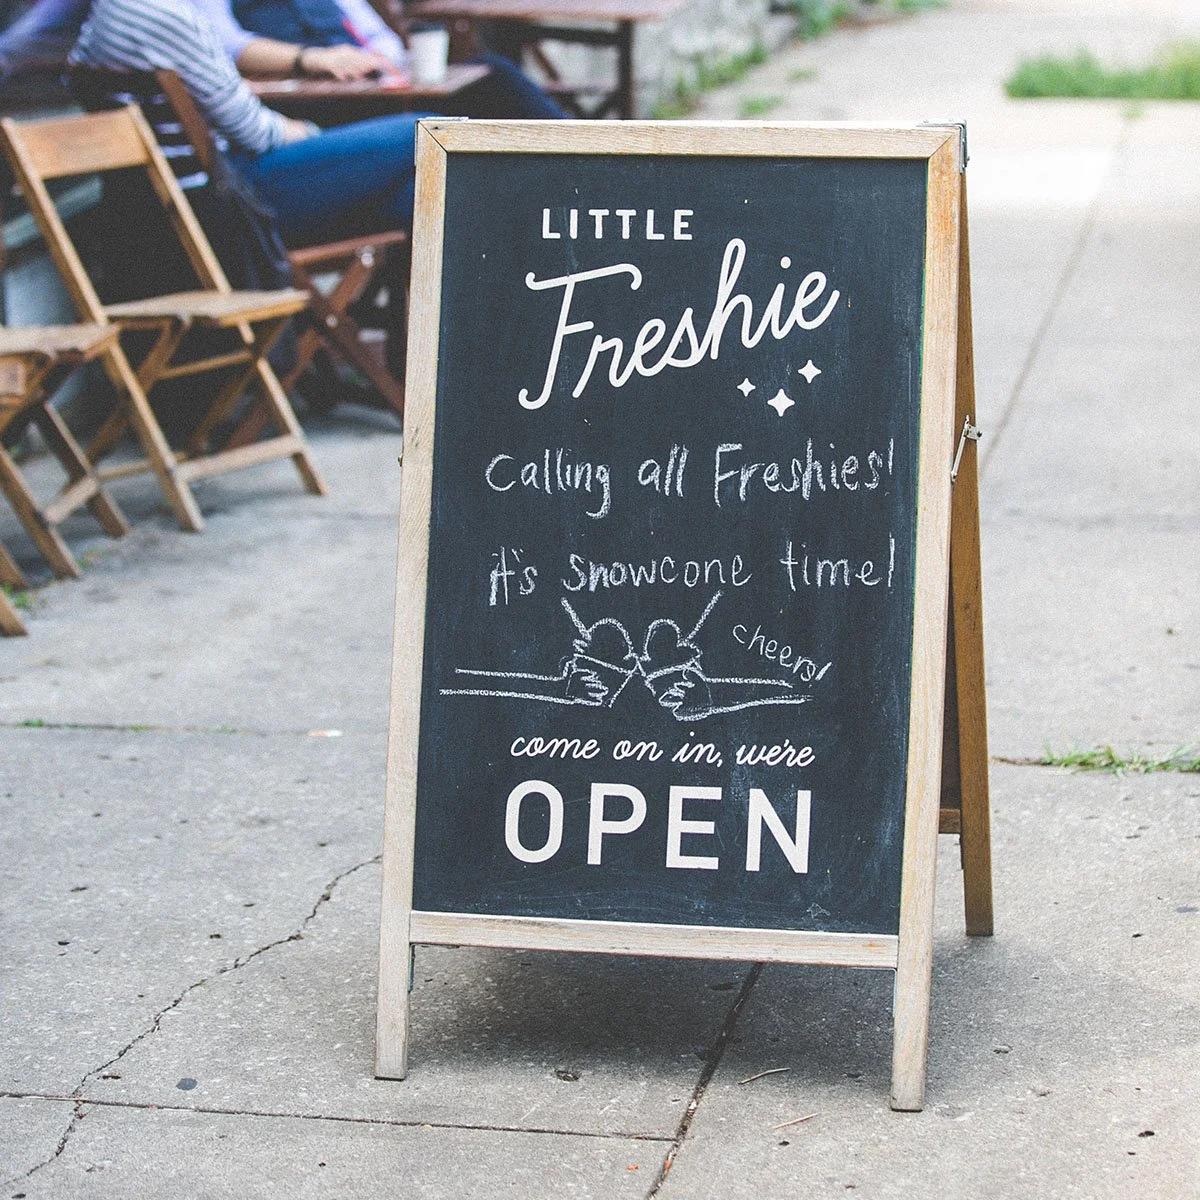 LITTLE
Freshie
Calling all Freshies!
it's snowcone time!
cheers!
come on in, we're
OPEN